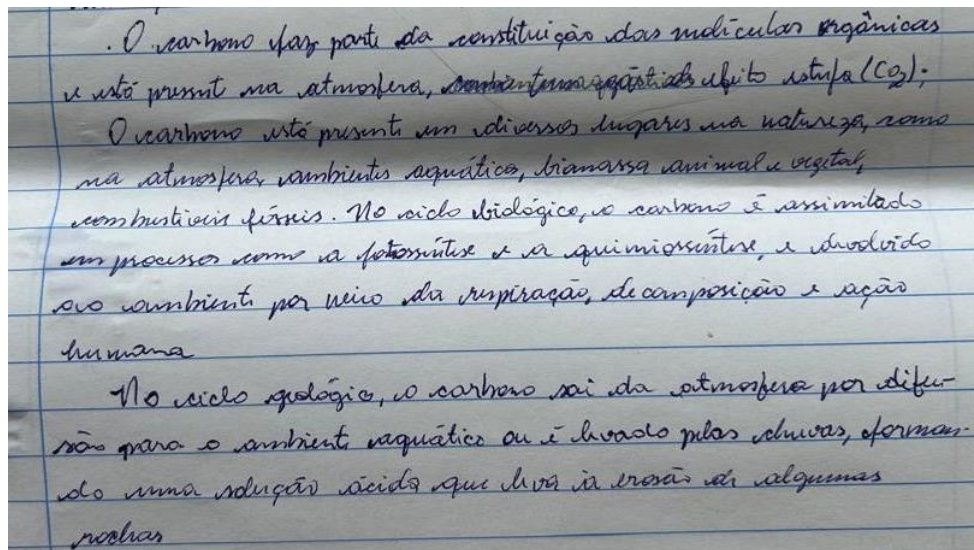 . O carbono faz parte da constituição das moléculas orgânicas
e está present na atmosfera, efeito estufa (CO2).
O carbono está presente em diversos lugares na natureza, como
na atmosfera, ambientes aquático, biomassa animal e vegetal,
combustiveis fósseis. No ciclo biológico, o carbono é assimilado
em processos como a fotossíntese e a quimiossíntese, e devolvido
ao ambiente por meio da respiração, decomposição e ação
humana
No ciclo geológico, o carbono sai da atmosfera por difu-
são para o ambiente aquático ou é levado pelas chuvas, forman-
do uma solução ácida que leva à erosão de algumas
rochas